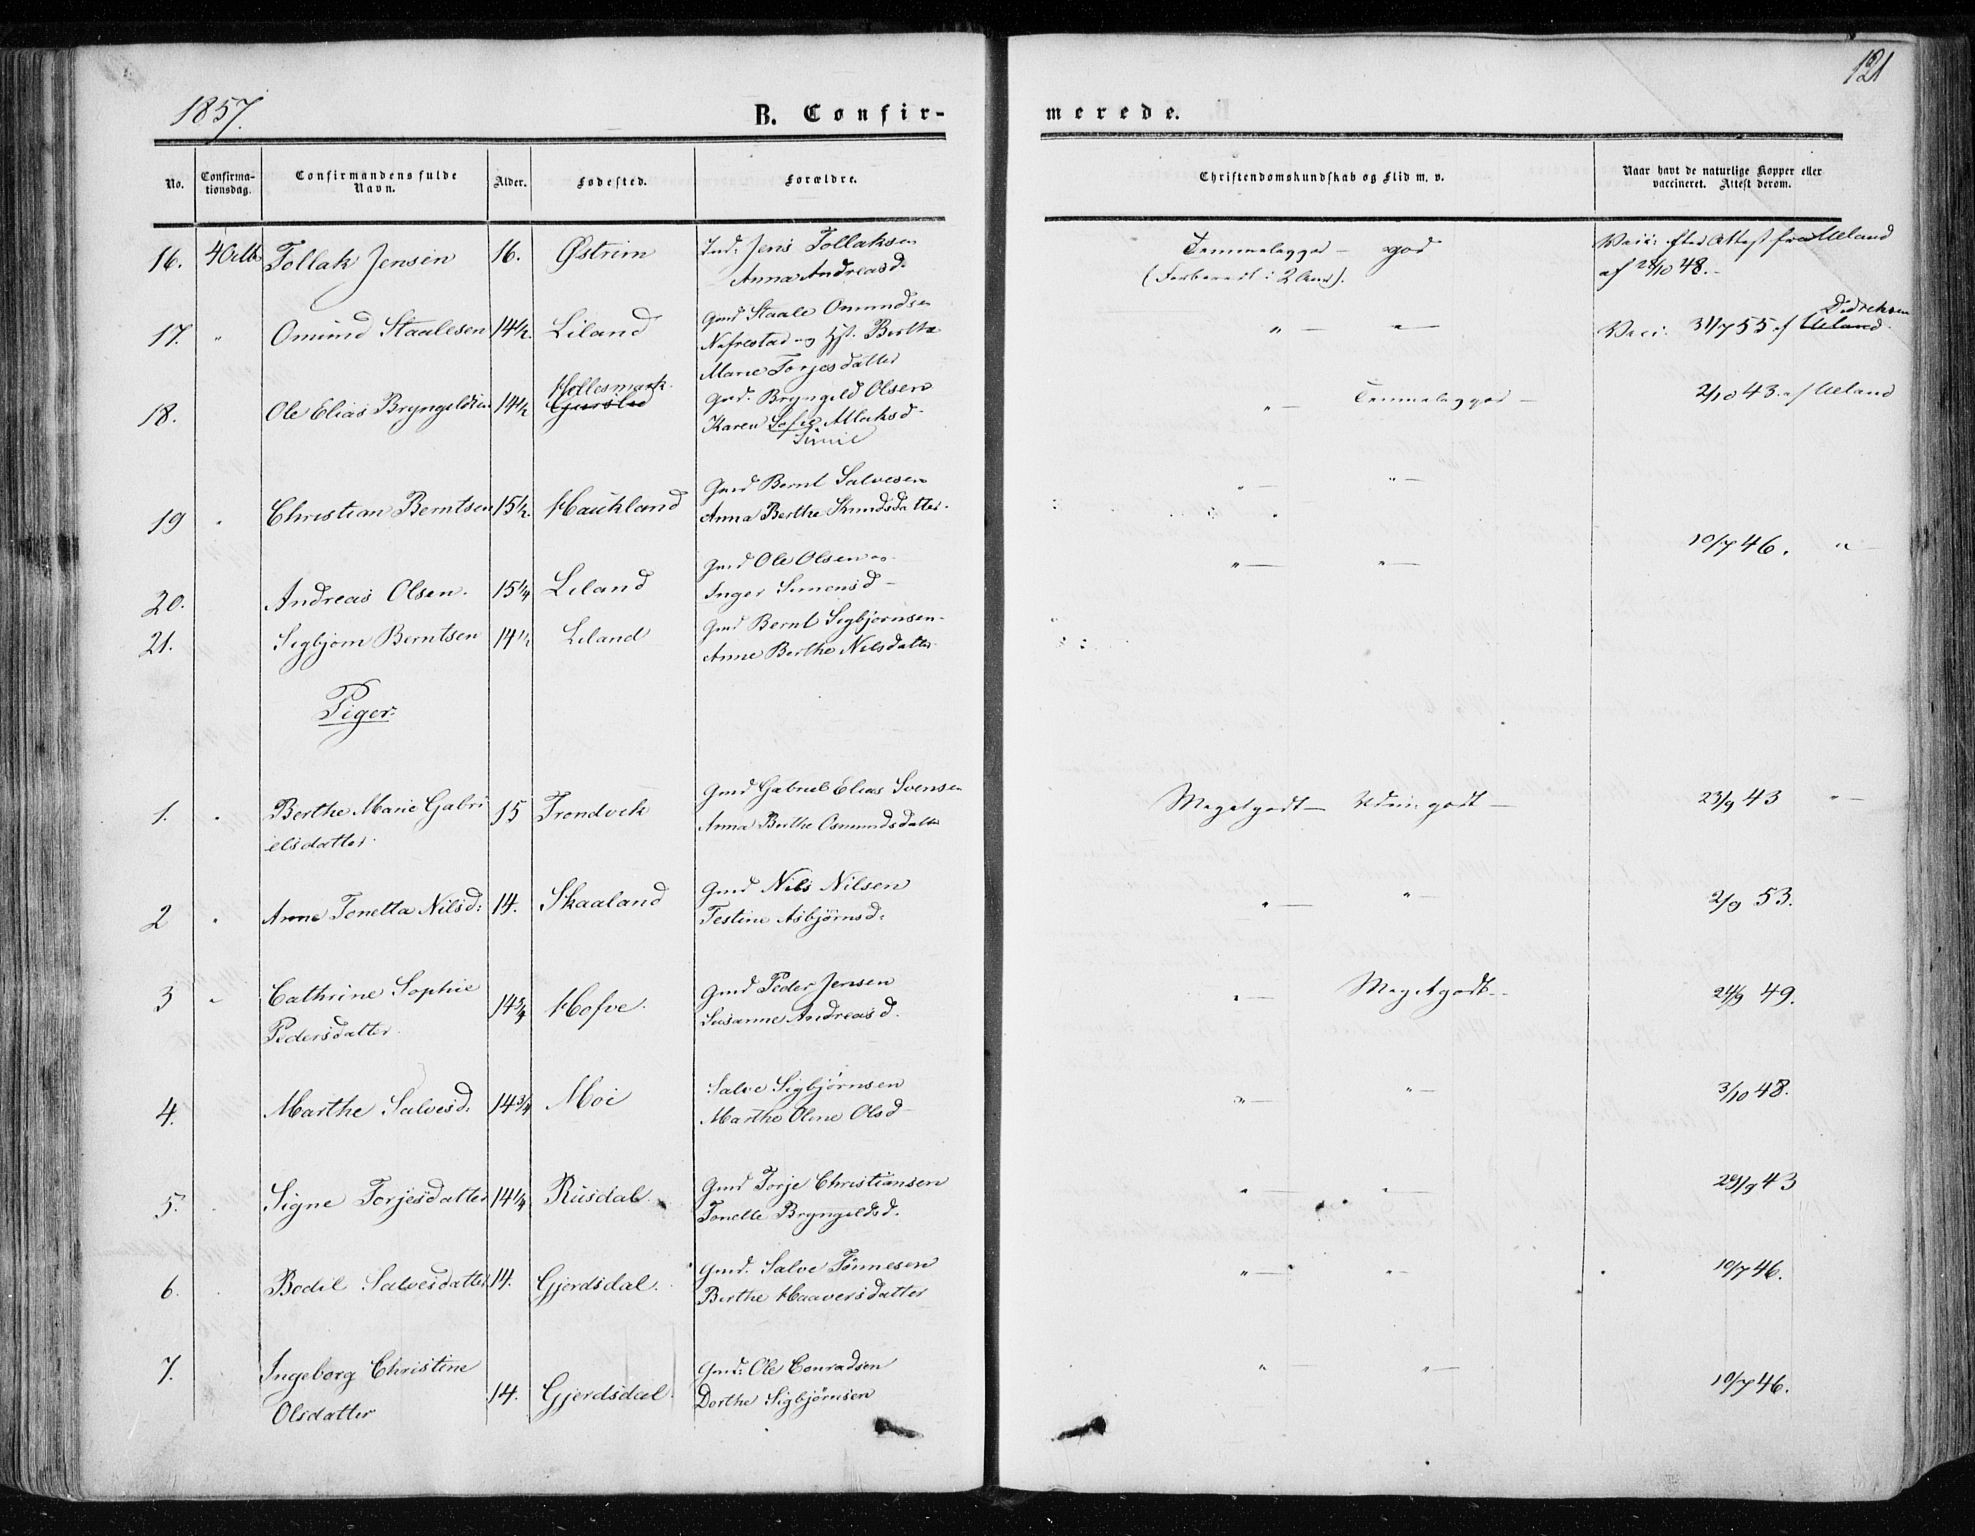 1857. B. Confir-merede. 121
No. Confirma-tionsdag. Confirmandens fulde Navn. Alder. Fødested. Forældre. Christendomskundskab og Flid m. v. Naar havt de naturlige Kopper eller vaccineret. Attest derom.
16. 4 Octb Tollak Jensen 16. Østrim Ind: Jens Tollaksen god Vacc: efter Attest fra Ueland
Anna Andreasd. (Forberedt i 2 Aar). af 28/10 48.
17. " Omund Staalesen 14½. Liland Gmd Staale Omundsen " — " — Vacc: 31/7 55 af Ueland Didreksen
Nefrestad og Hst. Berthe
Marie Torjesdatter
18. Ole Elias Bryngeldsen 14½ Gursled Hollesmark Gmd. Bryngeld Olsen " — Temmelig god — 2/10 43. af Ueland
Karen Sofie Allaksd.
19 " Christian Berntsen 15½. Haukland Gmd Bernt Salvesen " — " —
Anna Berthe Knudsdatter.
20. Andreas Olsen. 15¼ Liland Gmd Ole Olsen og " — " — 10/7 46. " —
Inger Simonsd —
21. Sigbjørn Berntsen 14½ Liland Gmd Bernt Sigbjørnsen
Anne Berthe Nilsdatter
Piger:
1. " Berthe Marie Gabri 15 Trondvik Gmd Gabriel Elias Svensen Megetgodt — godt — 23/9 43 " —
elsdatter. Anna Berthe Osmundsdatter
2 " Anne Tonetta Nilsd: 14. Skaaland Gmd Nils Nilsen " — " — 2/9 53.
Testine Asbjørnsd:
3 " Cathrine Sophie 14¾ Hofve. Gmd Peder Jensen " — Megetgodt — 24/9 49.
Pedersdatter. Susanne Andreasd.
4. Marthe Salvesd: 14¾ Moi Salve Sigbjørnsen " — " — 3/10 48.
Marthe Oline Olsd —
5. Signe Torjesdatter 14¼ Rusdal. Gmd Torje Christiansen " — " — 23/9 43
Tonette Bryngeldsd.
6. Bodil Salvesdatter 14. Gjerdsdal. Gmd. Salve Tønnesen " — " — 10/7 46.
Berthe Haaversdatter
7. Ingeborg Christine 14. Gjerdsdal. Gmd: Ole Conradsen " " — 10/7 46.
Olsdatter Dorthe Sigbjørnsen